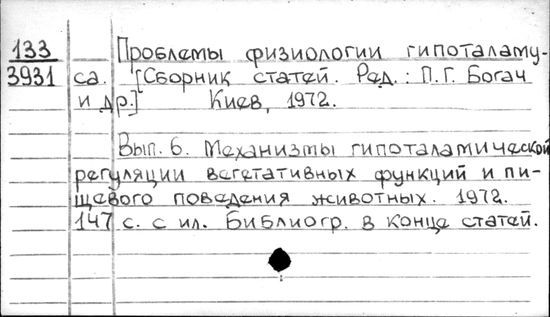 133 Проблемы физиологии гипоталаму-
3931 са. [Сборник статей. Ред.: П.Г. Богач
и др.] Киев, 1972.
Вып. 6. Механизмы гипоталамической
регуляции вегетативных функций и пи-
щевого поведения животных. 1972.
147 с. с ил. Библиогр. в конце статей.